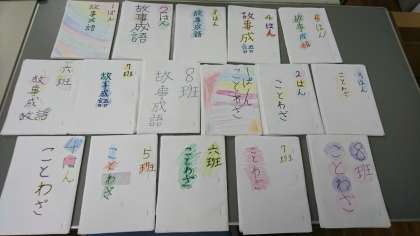 1ぱん
故事成語
2はん
故事成語
3はん
故事成語
4はん
故事成語
5はん
故事成語
六班
故事成語
7班
故事成語
8班
故事成語
1ぱん
ことわざ
2はん
ことわざ
3はん
ことわざ
4はん
ことわざ
5班
ことわざ
六班
ことわざ
7班
ことわざ
8班
ことわざ